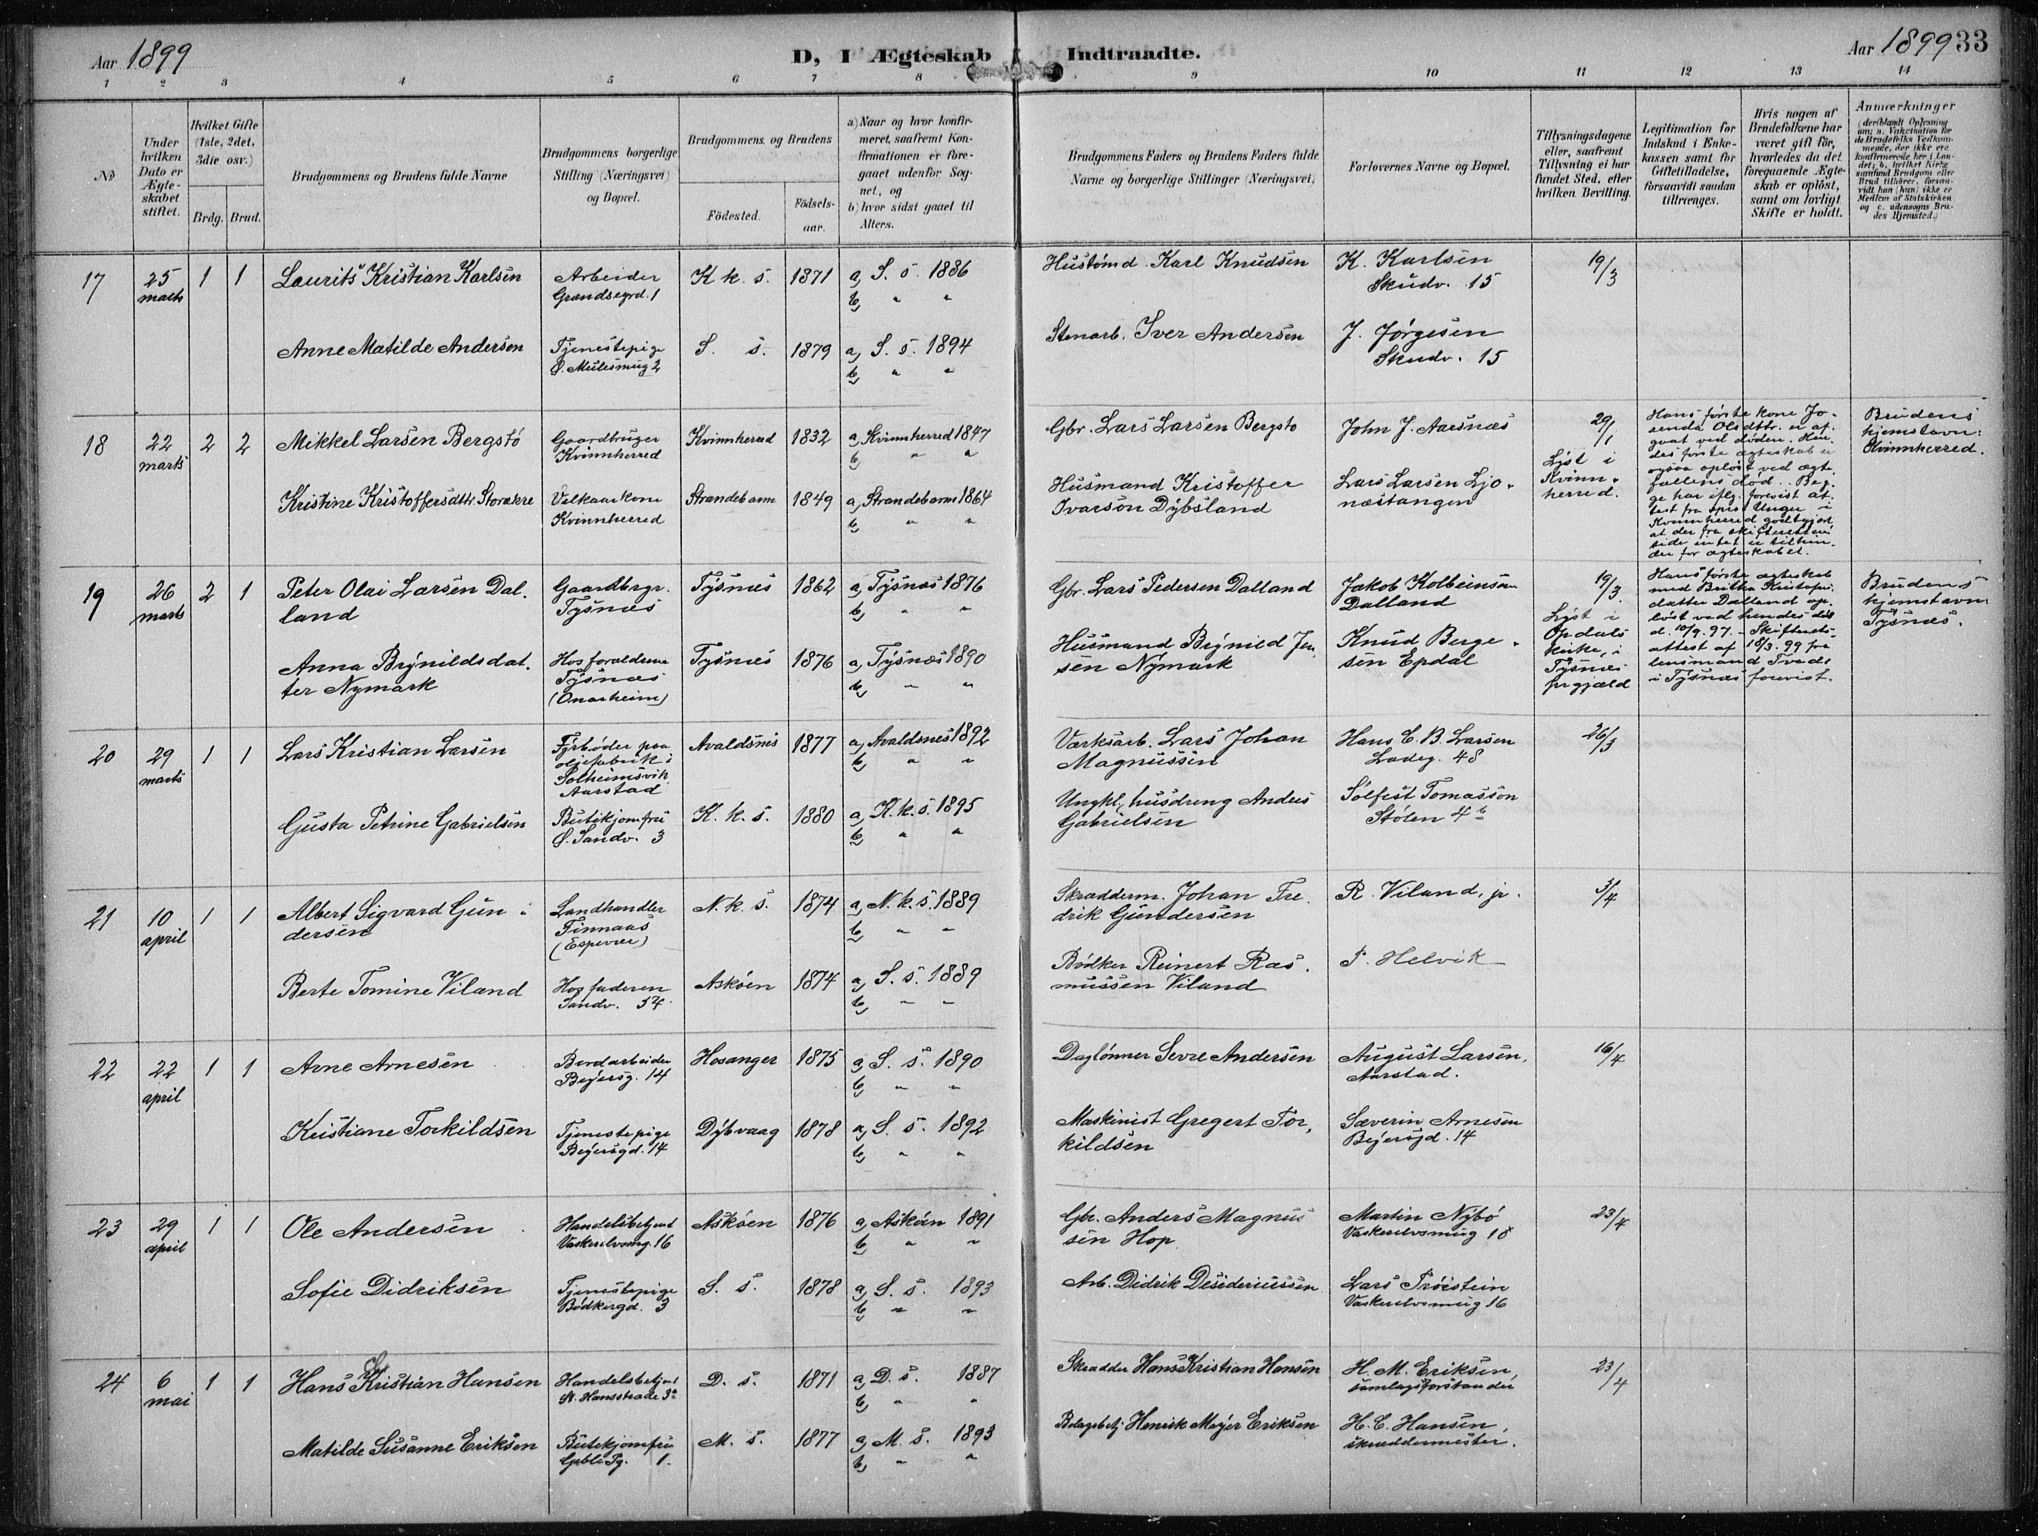 Aar 1899
D, I Ægteskab Indtraadte.
Aar 1899 33
1 2 3 4 5 6 7 8 9 10 11 12 13 14
No
Under hvilken Dato er Ægteskabet stiftet.
Hvilket Gifte (1ste, 2det, 3die osv.)
Brdg. Brud.
Brudgommens og Brudens fulde Navne
Brudgommens borgerlige Stilling (Næringsvei) og Bopæl.
Brudgommens og Brudens
Födested.
Födselsaar.
a) Naar og hvor konfirmeret, saafremt Konfirmationen er foregaaet udenfor Sognet, og
b) hvor sidst gaaet til Alters.
Brudgommens Faders og Brudens Faders fulde Navne og borgerlige Stillinger (Næringsvei)
Forlovernes Navne og Bopæl.
Tillysningsdagene eller, saafremt Tillysning ei har fundet Sted, efter hvilken Bevilling.
Legitimation for Indskud i Enkekassen samt for Giftetilladelse, forsaavidt saadan tiltrænges.
Hvis nogen af Brudefolkene har været gift før, hvorledes da det foregaaende Ægteskab er oplöst, samt om lovligt Skifte er holdt.
Anmærkninger
17 25 marts 1 1 Laurits Kristian Karlsen Arbeider Grændsegrd. 1 K. k. s. 1871 a, S. s. 1886 b, " " Hustømd. Karl Knudsen K. Karlsen Skudv. 15 19/3
Anne Matilde Andersen Tjenestepige Ø. Mulesmug 2 S. s. 1879 a, S. s. 1894 b, " " Stenarb. Iver Andersen J. Jørgesen Skudv. 15
18 22 marts 2 2 Mikkel Larsen Bergstø Gaardbruger Kvinnherred Kvinnherred 1832 a, Kvinnherred 1847 b, " " Gbr. Lars Larsen Bergstø John J. Aarsnæs 29/1 Lyst i Kvinnherred.
Kristine Kristoffersdttr. Storækre Velkaarkone Kvinnherred Strandebarm 1849 a, Strandebarm 1864 b, " " Husmand Kristoffer Ivarson Dybsland Lars Larsen Ljonæstangen
Hans første kone Josenda Olsdttr. er afgaat ved døden. Hendes første ægteskab er ogsaa opløst ved ægtefællens død. Begge har iflg. forevist attest fra Unger i Kvinnherred godtgjort at der fra skifterettens side intet er tilhinder for ægteskabet.
Brudens hjemstavn: Kvinnherred.
19 26 marts 2 1 Peter Olai Larsen Dalland Gaardbrgr. Tysnæs Tysnæs 1862 a, Tysnæs 1876 b, " " Gbr. Lars Pedersen Dalland Jakob Kolbeinsen Dalland 19/3 Lyst i Opdals kirke, i Tysnæs prgjæld
Anna Brynildsdatter Nymark Hos forældrene Tysnæs (Onarheim) Tysnæs 1876 a, Tysnæs 1890 b, " " Husmand Brynild Jensen Nymark Knud Bergesen Epdal
Hans første ægteskab med Britha Kristofersdatter Dalland opløst ved hendes død d. 10/9. 97. – Skifteretsattest af 18/3. 99 fra lensmand Tvedt i Tysnæs forevist.
Brudens hjemstavn Tysnæs.
20 29 marts 1 1 Lars Kristian Larsen Fyrbøder paa oljefabrik i Solheimsvik Aarstad Avaldsnes 1877 a, Avaldsnes 1892 b, " " Værksarb. Lars Johan Magnussen Hans C. B. Larsen Ladeg. 48 26/3
Gusta Petrine Gabrielsen Butikjomfru Ø. Sandv. 3 K. k. s. 1880 a, K. k. s. 1895 b, " " Ungkl, husdreng Anders Gabrielsen Sølfest Tomasson Stølen 4 b
21 10 april 1 1 Albert Sigvard Gundersen Landhandler Finnaas (Espevær) N. k. s. 1874 a, N. k. s. 1889 b, " " Skrædderm. Johan Fredrik Gundersen R. Viland, jr. 3/4
Berte Tomine Viland Hos faderen Sandv. 54. Askøen 1874 a, S. s. 1889 b, " " Bødker Reinert Rasmussen Viland P. Helvik
22 22 april 1 1 Arne Arnesen Bordarbeider Beyersg. 14 Hosanger 1875 a, S. s. 1890 b, " " Daglønner Sevre Andersen August Larsen, Aarstad. 16/4
Kristiane Torkildsen Tjenestepige Beyersgd. 14 Dybvaag 1878 a, S. s. 1892 b, " " Maskinist Gregert Torkildsen Sæverin Arnesen Beyersgd. 14
23 29 april 1 1 Ole Andersen Handelsbetjent Vaskerelvsmg. 16 Askøen 1876 a, Askøen 1891 b, " " Gbr. Anders Magnussen Hop Martin Nybø Vaskerelvsmug 18 23/4
Sofie Didriksen Tjenestepige Bødkergd. 3 S. s. 1878 a, S. s. 1893 b, " " Arb. Didrik Desideriussen Lars Trøistein Vaskerelvsmug 16
24 6 mai 1 1 Hans Kristian Hansen Handelsbetjent St. Hansstrade 3a D. s. 1871 a, D. s. 1887 b, " Skrædder Hans Kristian Hansen H. M. Eriksen, samlagsforstander 23/4
Matilde Susanne Eriksen Butikjomfru 1. M. s. 1877 a, M. s. 1893 b, " " Henrik Meyer Eriksen H. C. Hansen, skræddermester.